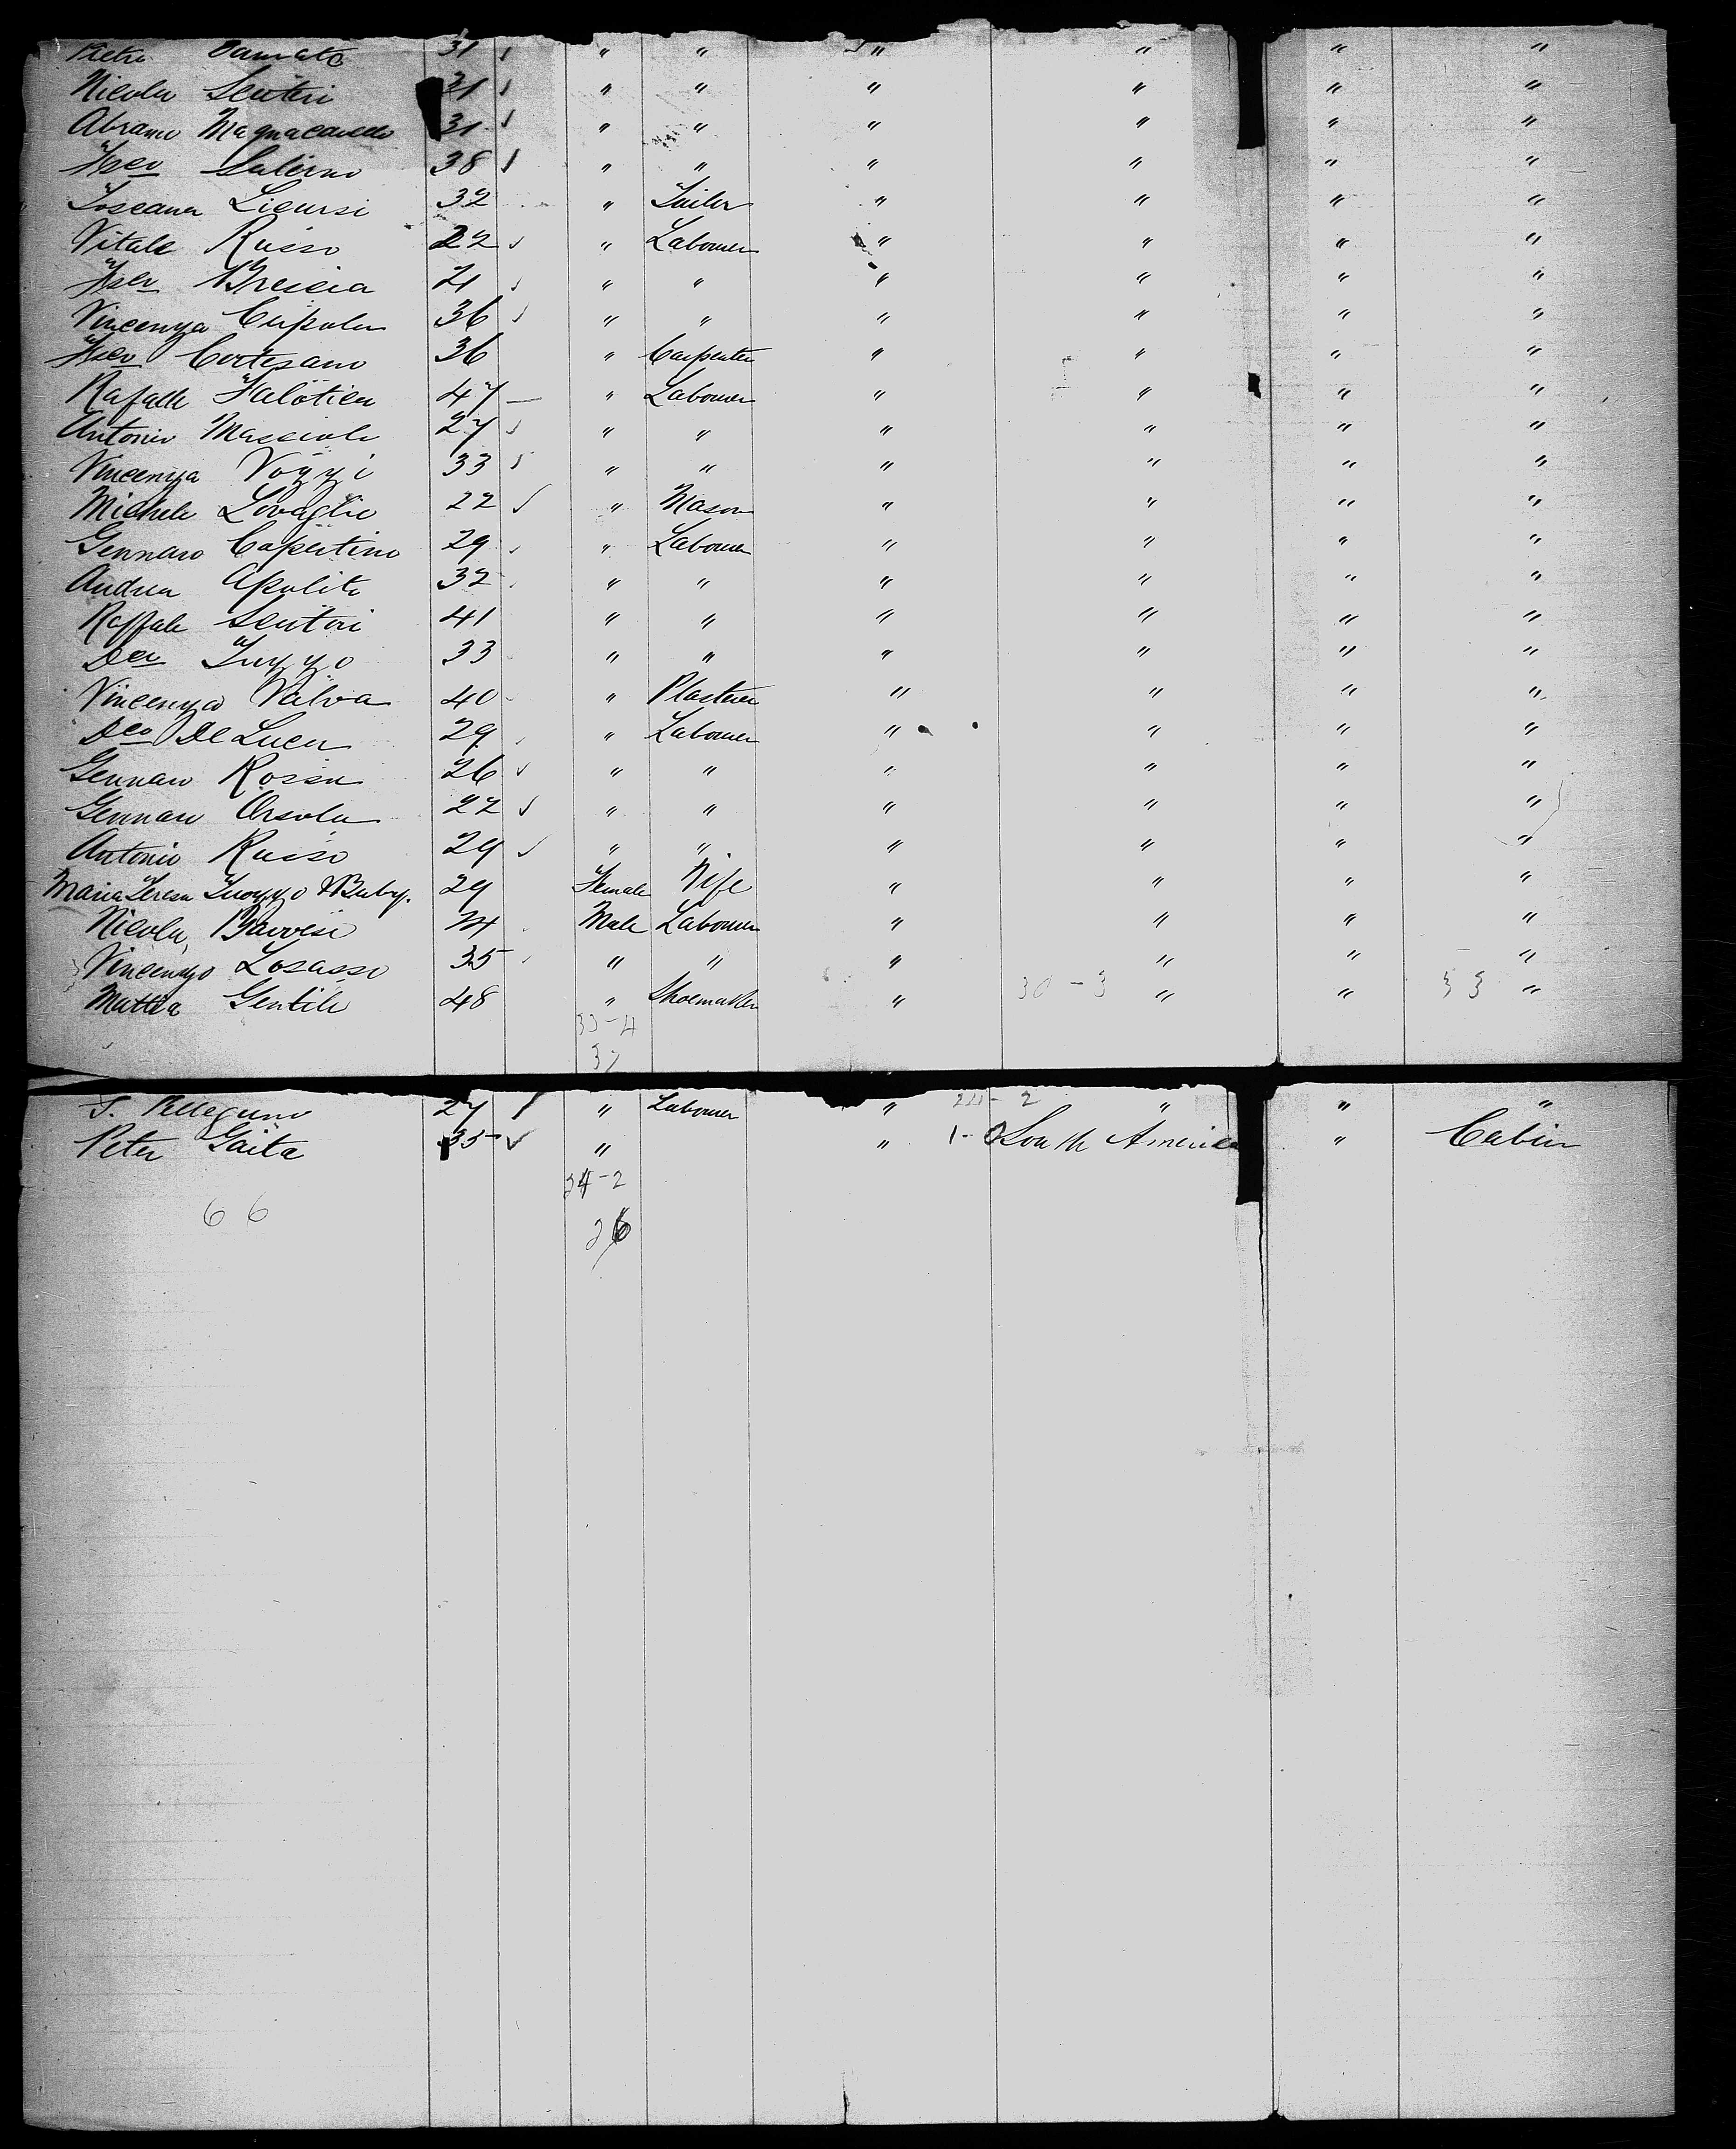 Pietro Damato 31 " " " " " "
Nicola Scutari 31 " " " " " "
Abramo Magnacavallo 31 " " " " " "
Fsco Salerno 38 " " " " " "
Toscana Licursi 32 " Tailor " " " "
Vitale Russo 22 " Labourer " " " "
Fsco Brescia 21 " " " " " "
Vincenza Cupola 36 " " " " " "
Fsco Cortesano 36 " Carpenter " " " "
Rafaele 47 " Labourer " " " "
Antonio Masciola 27 " " " " " "
Vincenza Vozzi 33 " " " " " "
Michele Lovaglio 22 " Mason " " " "
Gennaro Capertino 29 " Labourer " " " "
Andrea Apolito 32 " " " " " "
Raffale Scutari 41 " " " " " "
Dco 33 " " " " " "
Vincenza Valva 40 " Plasterer " " " "
Dco De Luca 29 " Labourer " " " "
Gennaro Rossa 26 " " " " " "
Gennaro Orsola 22 " " " " " "
Antonio Russo 29 " " " " " "
Maria Teresa & Baby. 29 Female Wife " " " "
Nicola Barrese 24 Male Labourer " " " "
Vincenzo Losasso 35 " " " " " "
Mattia Gentile 48 " Shoemaker " 30-3 " " 33 "
33-4
37
S. Pellegrino 27 " Labourer " 24-2 " " "
Peter Gaita 35 " " 1-0 South America " Cabin
24-2
66
26